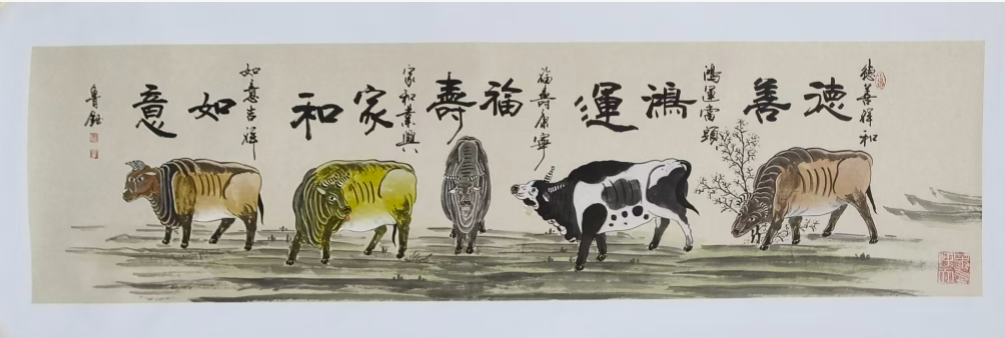 德善
德善祥和
鴻運
鴻運當頭
福壽
福壽康寧
家和
家和業興
如意
如意吉祥